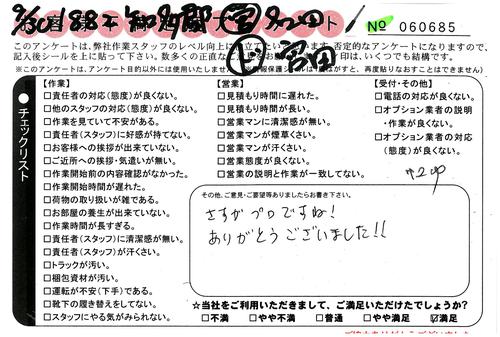 No 060685
このアンケートは、弊社作業スタッフのレベル向上に
記入後シールを上に貼って下さい。
※このアンケートは、アンケート目的以外には使用いたしません
●チェックリスト
【作業】
□責任者の対応(態度)が良くない。
□他のスタッフの対応(態度)が良くない。
□作業を見ていて不安がある。
□責任者(スタッフ)に好感が持てない。
□お客様への挨拶が出来ていない。
□ご近所への挨拶・気遣いが無い。
□作業開始前の内容確認がなかった。
□作業開始時間が遅れた。
□荷物の取り扱いが雑である。
□お部屋の養生が出来ていない。
□作業時間が長すぎる。
□責任者(スタッフ)に清潔感が無い。
□責任者(スタッフ)が汗くさい。
□トラックが汚い。
□梱包資材が汚い。
□運転が不安(下手)である。
□靴下の履き替えをしてない。
□スタッフにやる気がみられない。
【営業】
□見積もり時間に遅れた。
□見積もり時間が長い。
□営業マンに清潔感が無い。
□営業マンが煙草くさい。
□営業マンが汗くさい。
□営業態度が良くない。
□営業の説明と作業が一致してない。
【受付・その他】
□電話の対応が良くない。
□オプション業者の説明
・作業が良くない。
□オプション業者の対応
(態度)が良くない。
その他、ご意見・ご要望等ありましたらお書き下さい。
さすがプロですね!
ありがとうございました!!
☆当社をご利用いただきまして、ご満足いただけたでしょうか?
□不満 □やや不満 □普通 □やや満足 ☑満足